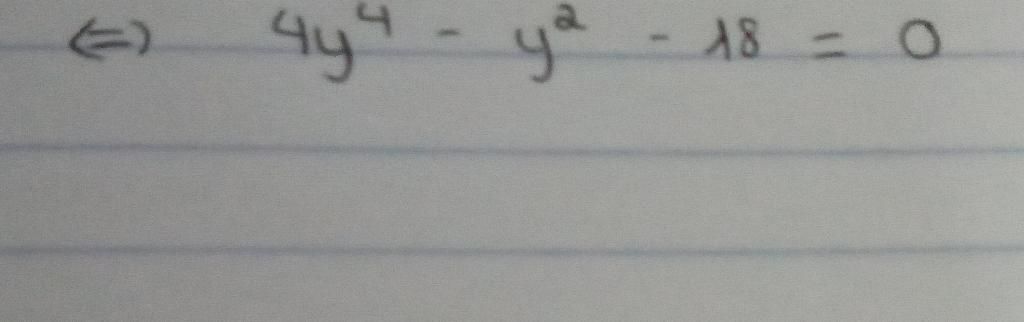 ⇔ 4y⁴ - y² - 18 = 0